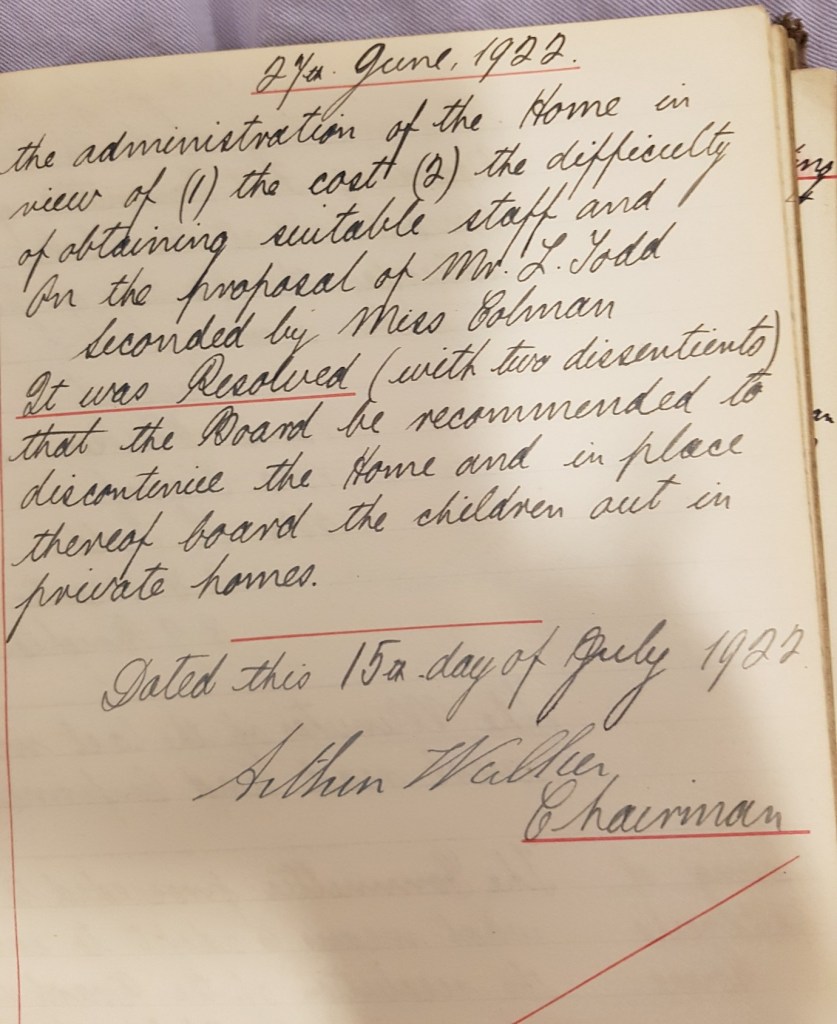 27th June, 1922.
the administration of the Home in
view of (1) the cost (2) the difficulty
of obtaining suitable staff and
On the proposal of Mr. L. Todd
seconded by Miss Colman
It was Resolved (with two dissentients)
that the Board be recommended to
discontinue the Home and in place
thereof board the children out in
private homes.
Dated this 15th day of July 1922
Arthur Walker
Chairman